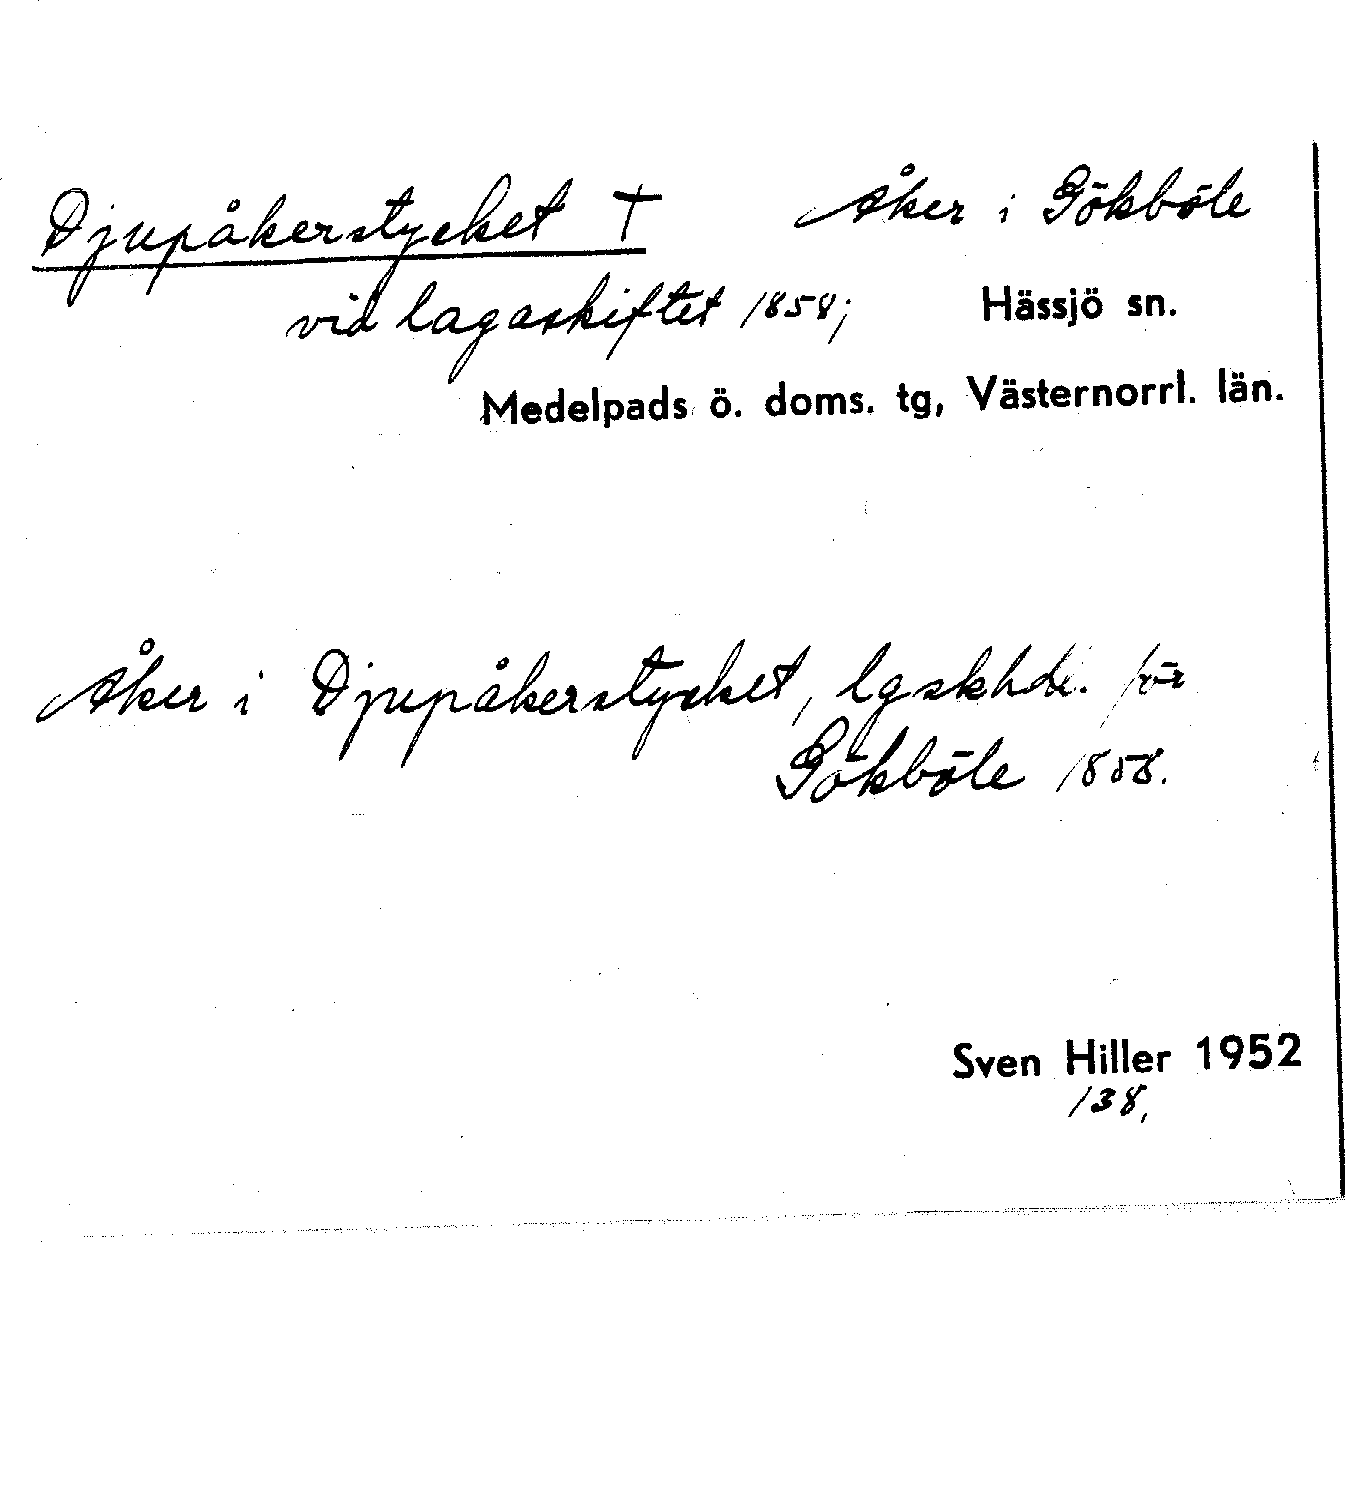 Djupåkerstycket † Åker i Gökböle
vid lagaskiftet 1858; Hässjö sn.
Medelpads ö. doms. tg, Västernorrl. län.
Åker i Djupåkerstycket, lgskhdl. för
Gökböle 1858.
Sven Hiller 1952
138,